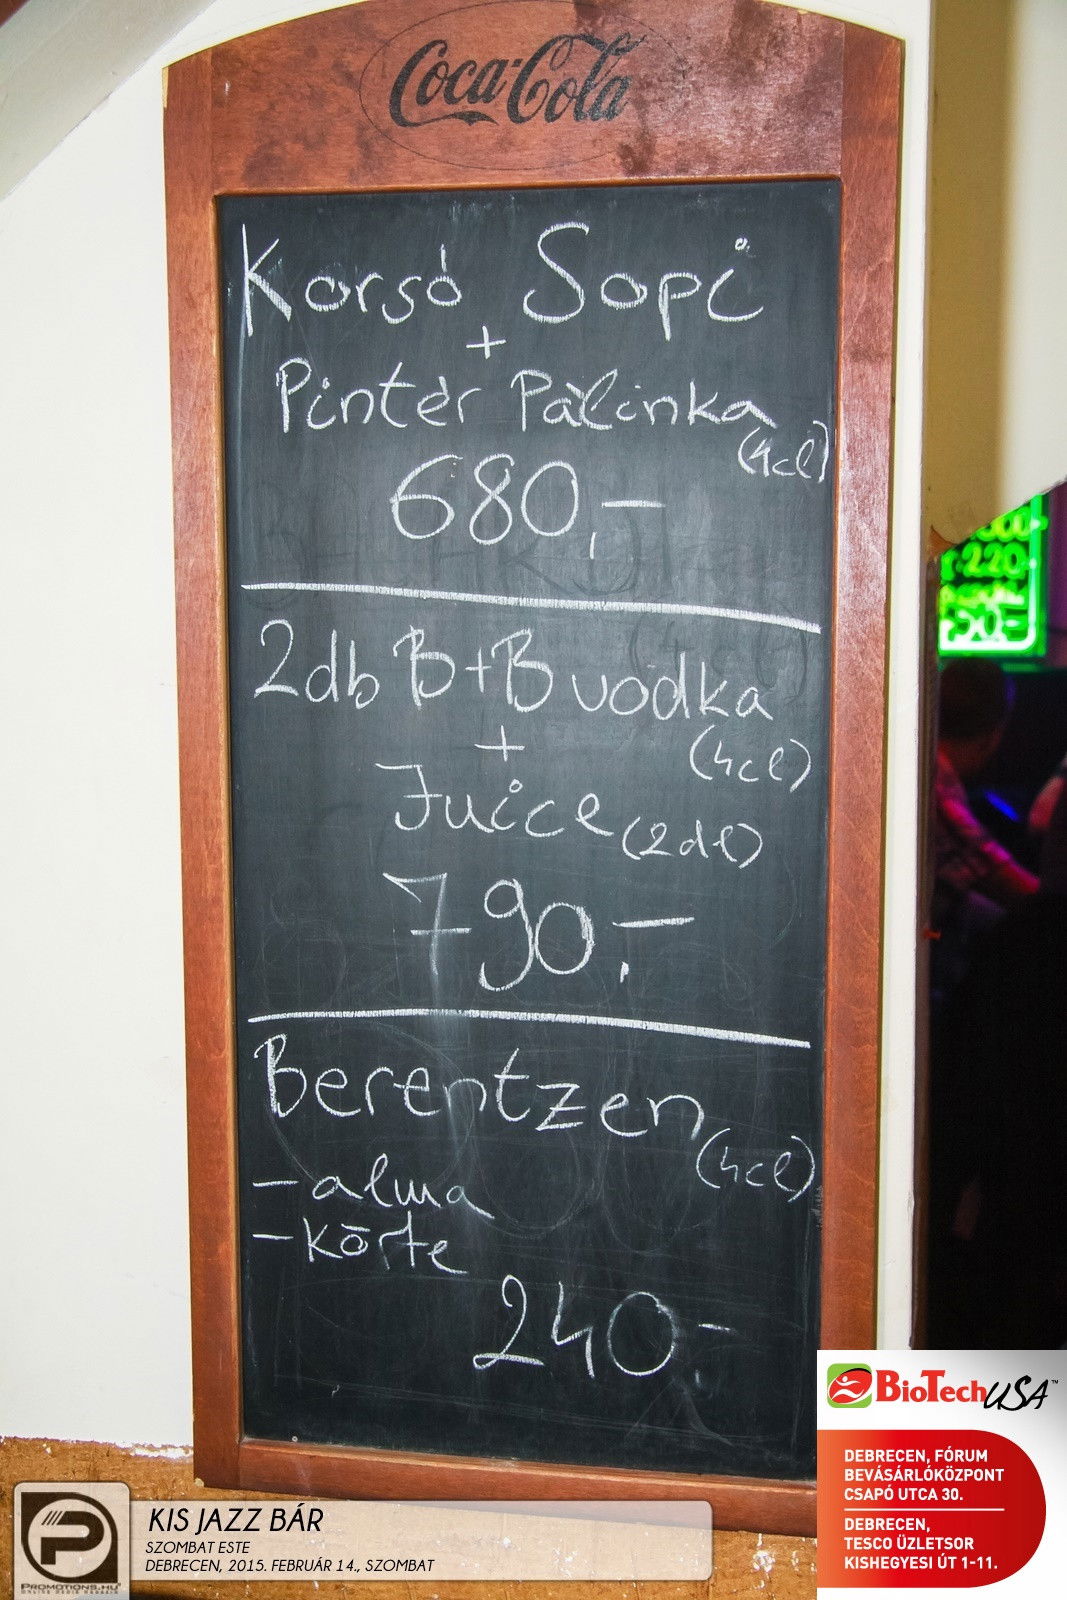 Coca-Cola
Korsó Sopi
+
Pintér Pálinka
(4cl)
680,-
2db B+B vodka
+
(4cl)
Juice (2dl)
790.-
Berentzen
(4cl)
- alma
- körte
240.-
220.-
50.-
BioTechUSA™
DEBRECEN, FÓRUM
BEVÁSÁRLÓKÖZPONT
CSAPÓ UTCA 30.
DEBRECEN,
TESCO ÜZLETSOR
KISHEGYESI ÚT 1-11.
KIS JAZZ BÁR
SZOMBAT ESTE
DEBRECEN, 2015. FEBRUÁR 14., SZOMBAT
PROMOTIONS.HU
ONLINE MEDIA MAGAZIN